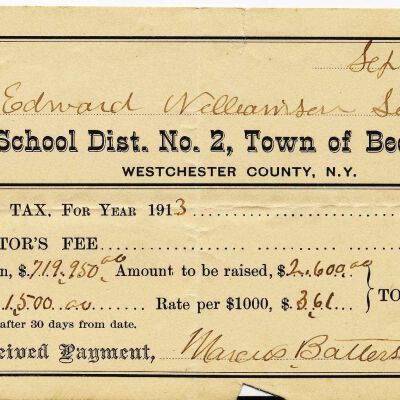 Sep
Edward Williamson
School Dist. No. 2, Town of Bed
WESTCHESTER COUNTY, N.Y.
TAX, FOR YEAR 1913
TOR'S FEE
n, $.719,950.00 Amount to be raised, $2,600.00
1,500.00 Rate per $1000, $.3.61 TO
after 30 days from date.
eived Payment, Marcus Batters